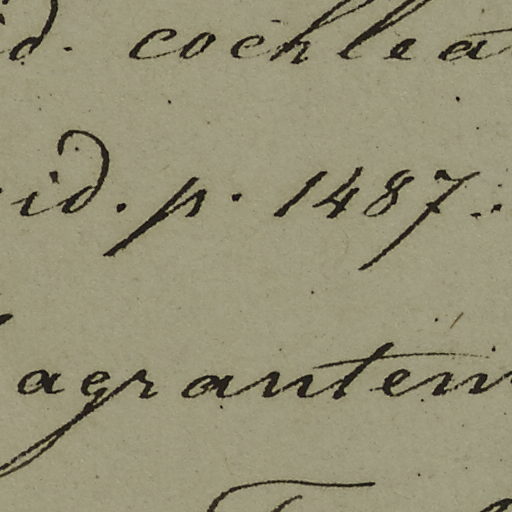 id. cochlea
id. p. 1487.
agranten